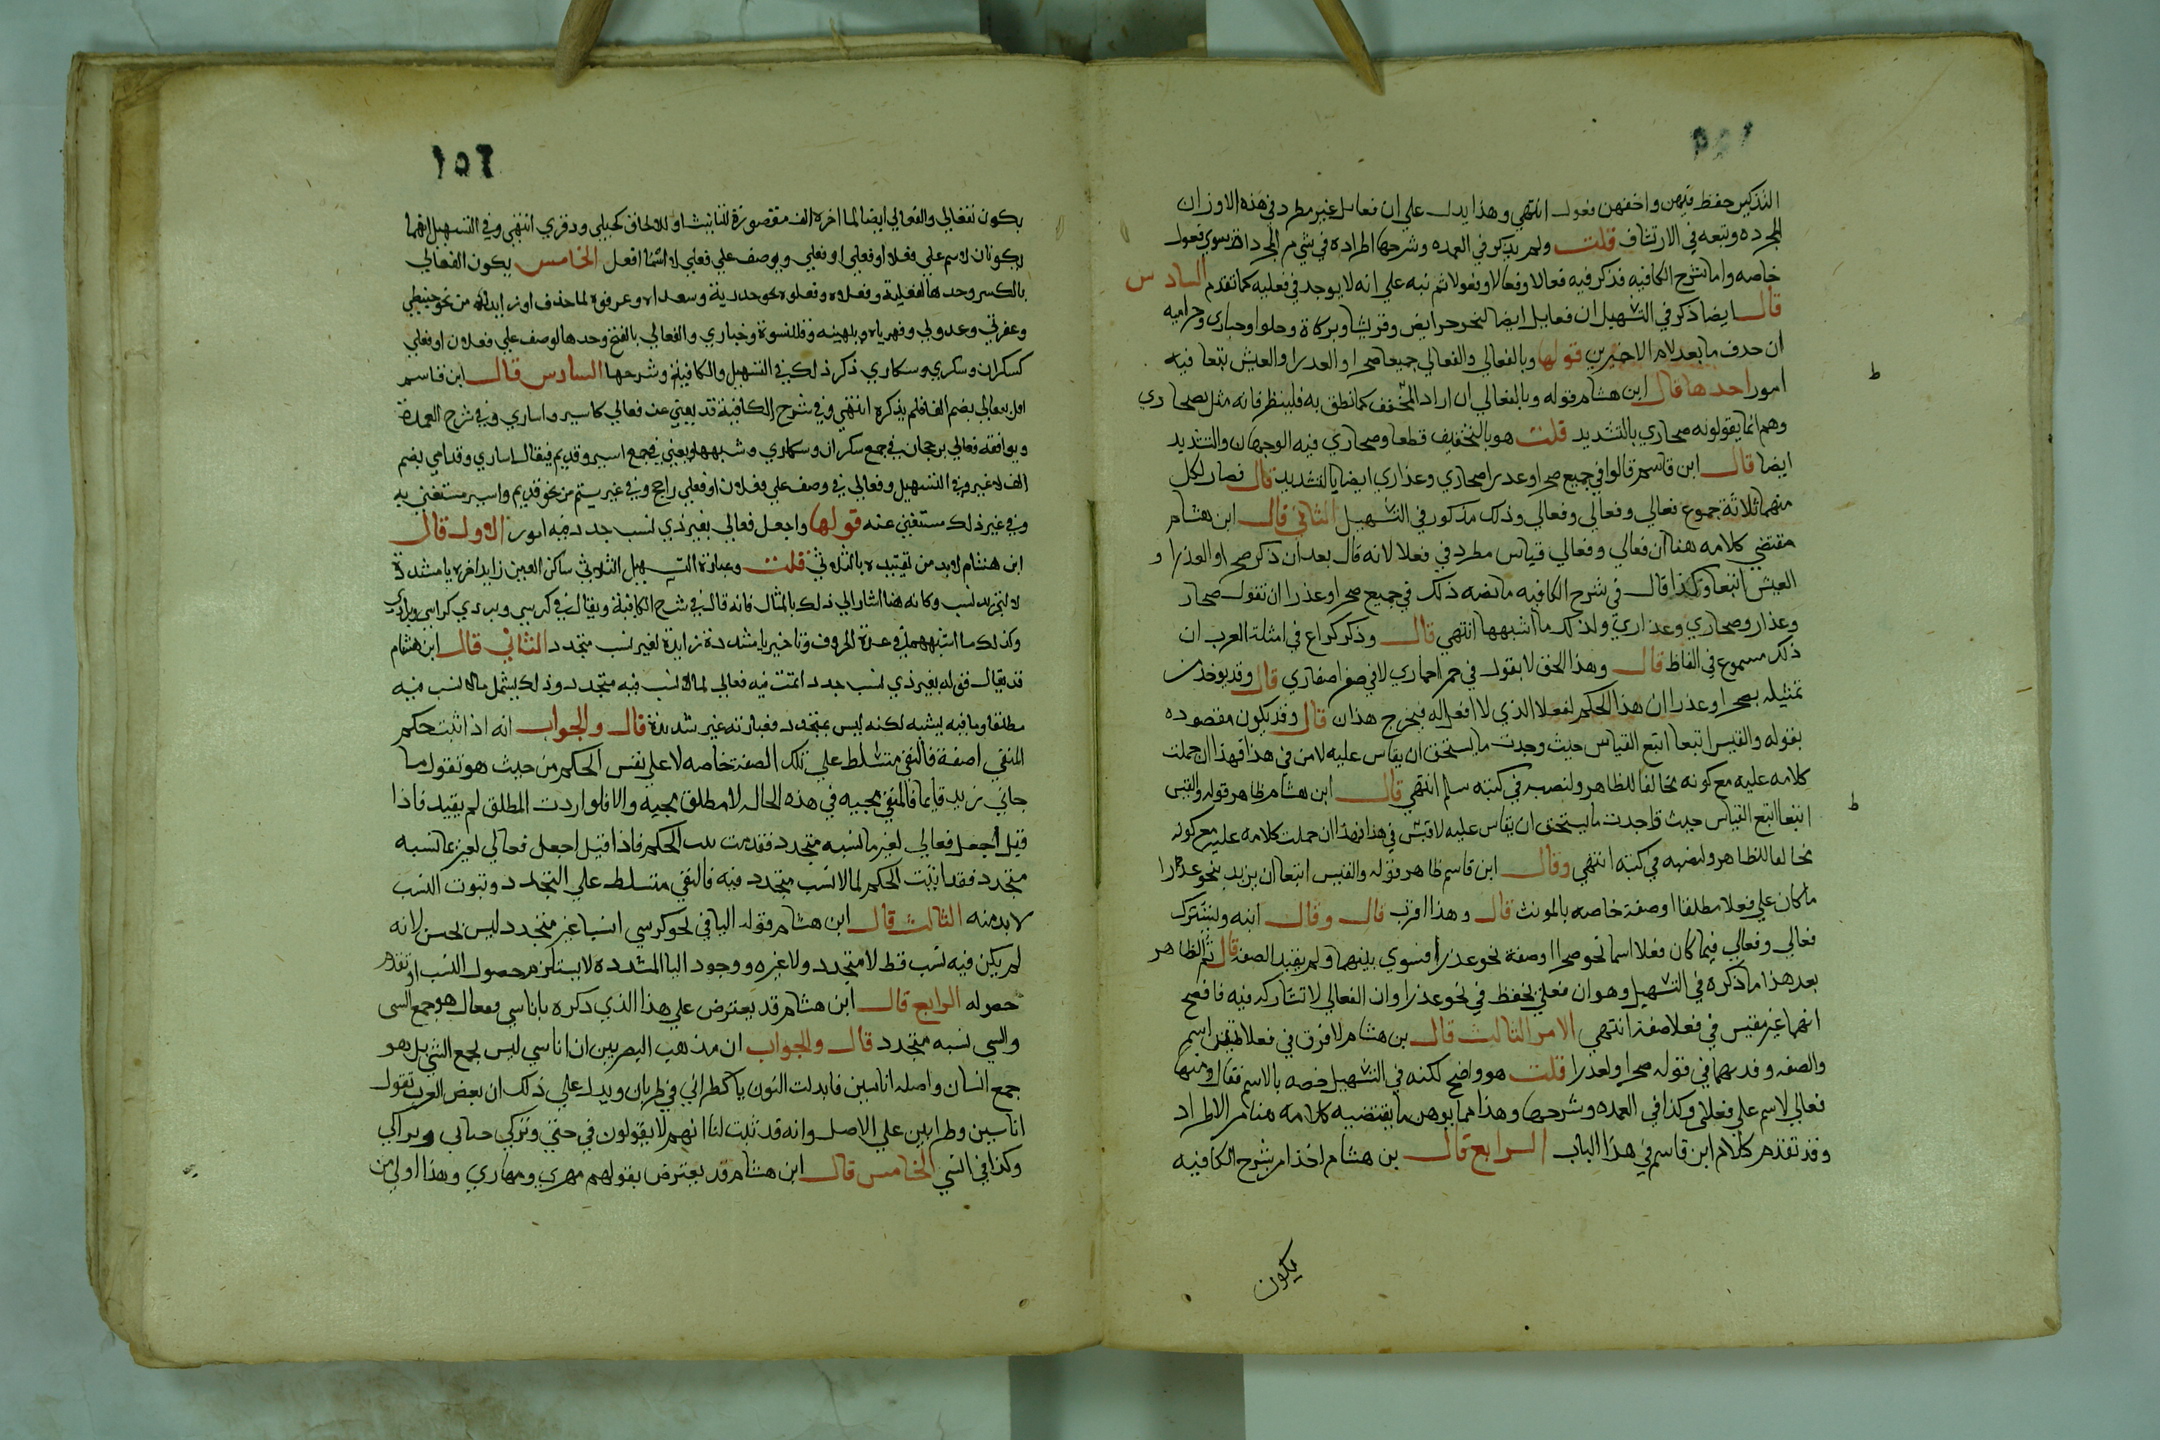 التذكير حفظ فيهن واخفهن فعول انتهي وهذا يدل علي ان فعايل غير مطرد في هذه الاوزان
المجرده وتبعه في الارتشاف قلت ولم يذكر في العمده وشرحها اطراده في شي من المجردات سوي فعوله
خاصه واما شرح الكافيه فذكر فيه فعالا وفعالا وفعولا ثم نبه علي انه لا يوجد في فعليه كما تقدم السادس
قال ايضا ذكر في التسهيل ان فعايل ايضا لنحو جرايض وقريثا وبركاة وجلولا وحباري وحزابيه
ان حذف ما بعد لام الاخيرين قولها وبالفعالي والفعالي جمعا صحرا والعذرا والقيس اتبعا فيه
امور احدها قال ابن هشام قوله وبالفعالي ان اراد المخفف كما نطق به فلينظر فانه مثل بصحاري
وهم انما يقولونه صحاري بالتشديد قلت هو بالتخفيف قطعا وصحاري فيه الوجهان والتشديد
ايضا قال ابن قاسم قالوا في جميع صحرا وعذرا صحاري وعذاري ايضا بالتشديد قال فصار لكل
منهما ثلاثة جموع فعالي وفعالي وفعالي وذلك مذكور في التسهيل الثاني قال ابن هشام
مقتضي كلامه هنا ان فعالي وفعالي قياس مطرد في فعلا لانه قال بعد ان ذكر صحرا والعذرا و
القيس اتبعا وكذا قال في شرح الكافيه ما نصه ذلك في جميع صحرا وعذرا ان تقول صحار
وعذار وصحاري وعذاري ولذلك ما اشبهها انتهي قال وذكر كراع في امثلة العرب ان
ذلك مسموع في الفاظ قال وهذا الحق لا يقول في حمرا حماري لا في صفرا صفاري قال وقد يوخذ من
تمثيله بصحرا وعذرا ان هذا الحكم لفعلا الذي لا افعل له فيخرج هذان قال وقد يكون مقصوده
بقوله والقيس اتبعا اتبع القياس حيث وجدت ما يستحق ان يقاس عليه لا من في هذا فهذا ان حملت
كلامه عليه مع كونه مخالفا للظاهر ولنصه في كتبه سلم انتهي قال ابن هشام ظاهر قوله والقيس
اتبعا اتبع القياس حيث وجدت ما يستحق ان يقاس عليه لا قيس في هذا فهذا ان حملت كلامه عليه مع كونه
مخالفا للظاهر ولنصه في كتبه انتهي وقال ابن قاسم ظاهر قوله والقيس اتبعا ان يريد بنحو عذرا
ما كان علي فعلا مطلقا او صفة خاصه بالمونث قال وهذا اقرب قال وقال ابنه ويشترك
فعالي وفعالي فيما كان فعلا اسما نحو صحرا او صفة نحو عذرا فسوي بينهما ولم يقيد الصفه قال ثم الظاهر
بعد هذا ما ذكره في التسهيل وهو ان فعلي يحفظ في نحو عذرا وان الفعالي لا تشاركه فيه فافصح
انهما غير مقيس في فعلا صفة انتهي الامر الثالث قال بن هشام لا فرق في فعلا بين اسم
والصفه وقد بهما في قوله صحرا ولعذرا قلت هو واضح لكنه في التسهيل خصه بالاسم فقال ومنها
فعالي لاسم علي فعلا وكذا في العمده وشرحها وهذا مما يوهن ما يقتضيه كلامه هنا من الاطراد
وقد تقدم كلام ابن قاسم في هذا الباب الرابع قال بن هشام اخذ من شرح الكافيه
يكون
١٥٦
يكون نفعالي والفعالي ايضا لما اخره الف مقصورة للتانيث او للالحاق كحبلي وذفري انتهي وفي التسهيل انهما
يكونان لاسم علي فعلا او فعلي او فعلي ولوصف علي فعلي لا انثي افعل الخامس يكون الفعالي
بالكسر وحدها لفعلية وفعلاه وفعلوه نحو حدرية وسعلاه وعرقوة لما حذف اول زايديه من نحو حبنطي
وعفرني وعدولي وقهوباه وبلهنيه وقلنسوة وحباري والفعالي بالفتح وحدها لوصف علي فعلان او فعلي
كسكران وسكري وسكاري ذكر ذلك في التسهيل والكافية وشرحها السادس قال ابن قاسم
اهل فعالي بضم الفا فلم يذكره انتهي وفي شرح الكافية قد يغني عن فعالي كاسير واساري وفي شرح العمدة
ويوافقه فعالي برجحان في جمع سكران وسكاري وشبهها ويغني في جمع اسير وقديم فيقال اساري وقدامي بضم
الف لا غير وفي التسهيل وفعالي في وصف علي فعلان او فعلي راجح وفي غير يتيم من نحو قديم واسير مستغني به
وفي غير ذلك مستغني عنه قولها واجعل فعالي بغير ذي نسب جدد فيه امور الاول قال
ابن هشام لا بد من تقييده بالثلاثي قلت وعبارة التسهيل الثلاثي ساكن العين زايد اخره يا مشددة
لا لتجديد نسب وكانه هنا اشار الي ذلك بالمثال فانه قال في شرح الكافية ويقال في كرسي وبردي كراسي وبرادي
وكذلك ما اشبههما في عدة الحروف وتاخير يا مشددة زايدة لغير نسب متجدد الثاني قال ابن هشام
قد يقال في قوله بغير ذي نسب جدد اثبت فيه فعالي لما لا نسب فيه متجدد وذلك يشمل ما لا نسب فيه
مطلقا وما فيه يشبه لكنه ليس بمتجدد فعبارته غير شديدة قال والجواب انه اذا ثبت حكم
المنفي لصفة فالنفي متسلط علي تلك الصفة خاصه لا علي نفس الحكم من حيث هو تقول ما
جاني زيد قايما فالمنفي مجييه في هذه الحال لا مطلق مجييه والا فلو اردت المطلق لم يقيد فاذا
قيل اجعل فعالي لغير ما نسبه متجدد فقد الحكم فاذا قيل اجعل فعالي لغير ما نسبه
متجدد فقد اثبت الحكم لما لا نسب متجدد فيه فالنفي متسلط علي التجدد وثبوت النسب
لا بد منه الثالث قال ابن هشام قوله اليا في نحو كرسي انسبا غير متجدد ليس بحسن لانه
لم يكن فيه نسب قط لا متجدد ولا غيره ووجود اليا المشدده لا يستلزم حصول النسب او تقدم
حصوله الرابع قال ابن هشام قد يعترض علي هذا الذي ذكره باناسي وفعال هو جمع انسي
وانسي نسبه متجدد قال والجواب ان مذهب البصريين ان اناسي ليس بجمع انسي بل هو
جمع انسان واصله اناسين فابدلت النون يا كظرابي في ظربان ويدل علي ذلك ان بعض العرب تقول
اناسين وظرابين علي الاصل وانه قد ثبت لنا انهم لا يقولون في جني وتركي جناني وتراكي
وكذا في انسي الخامس قال ابن هشام قد يعترض بقولهم مهري ومهاري وهذا اولي من